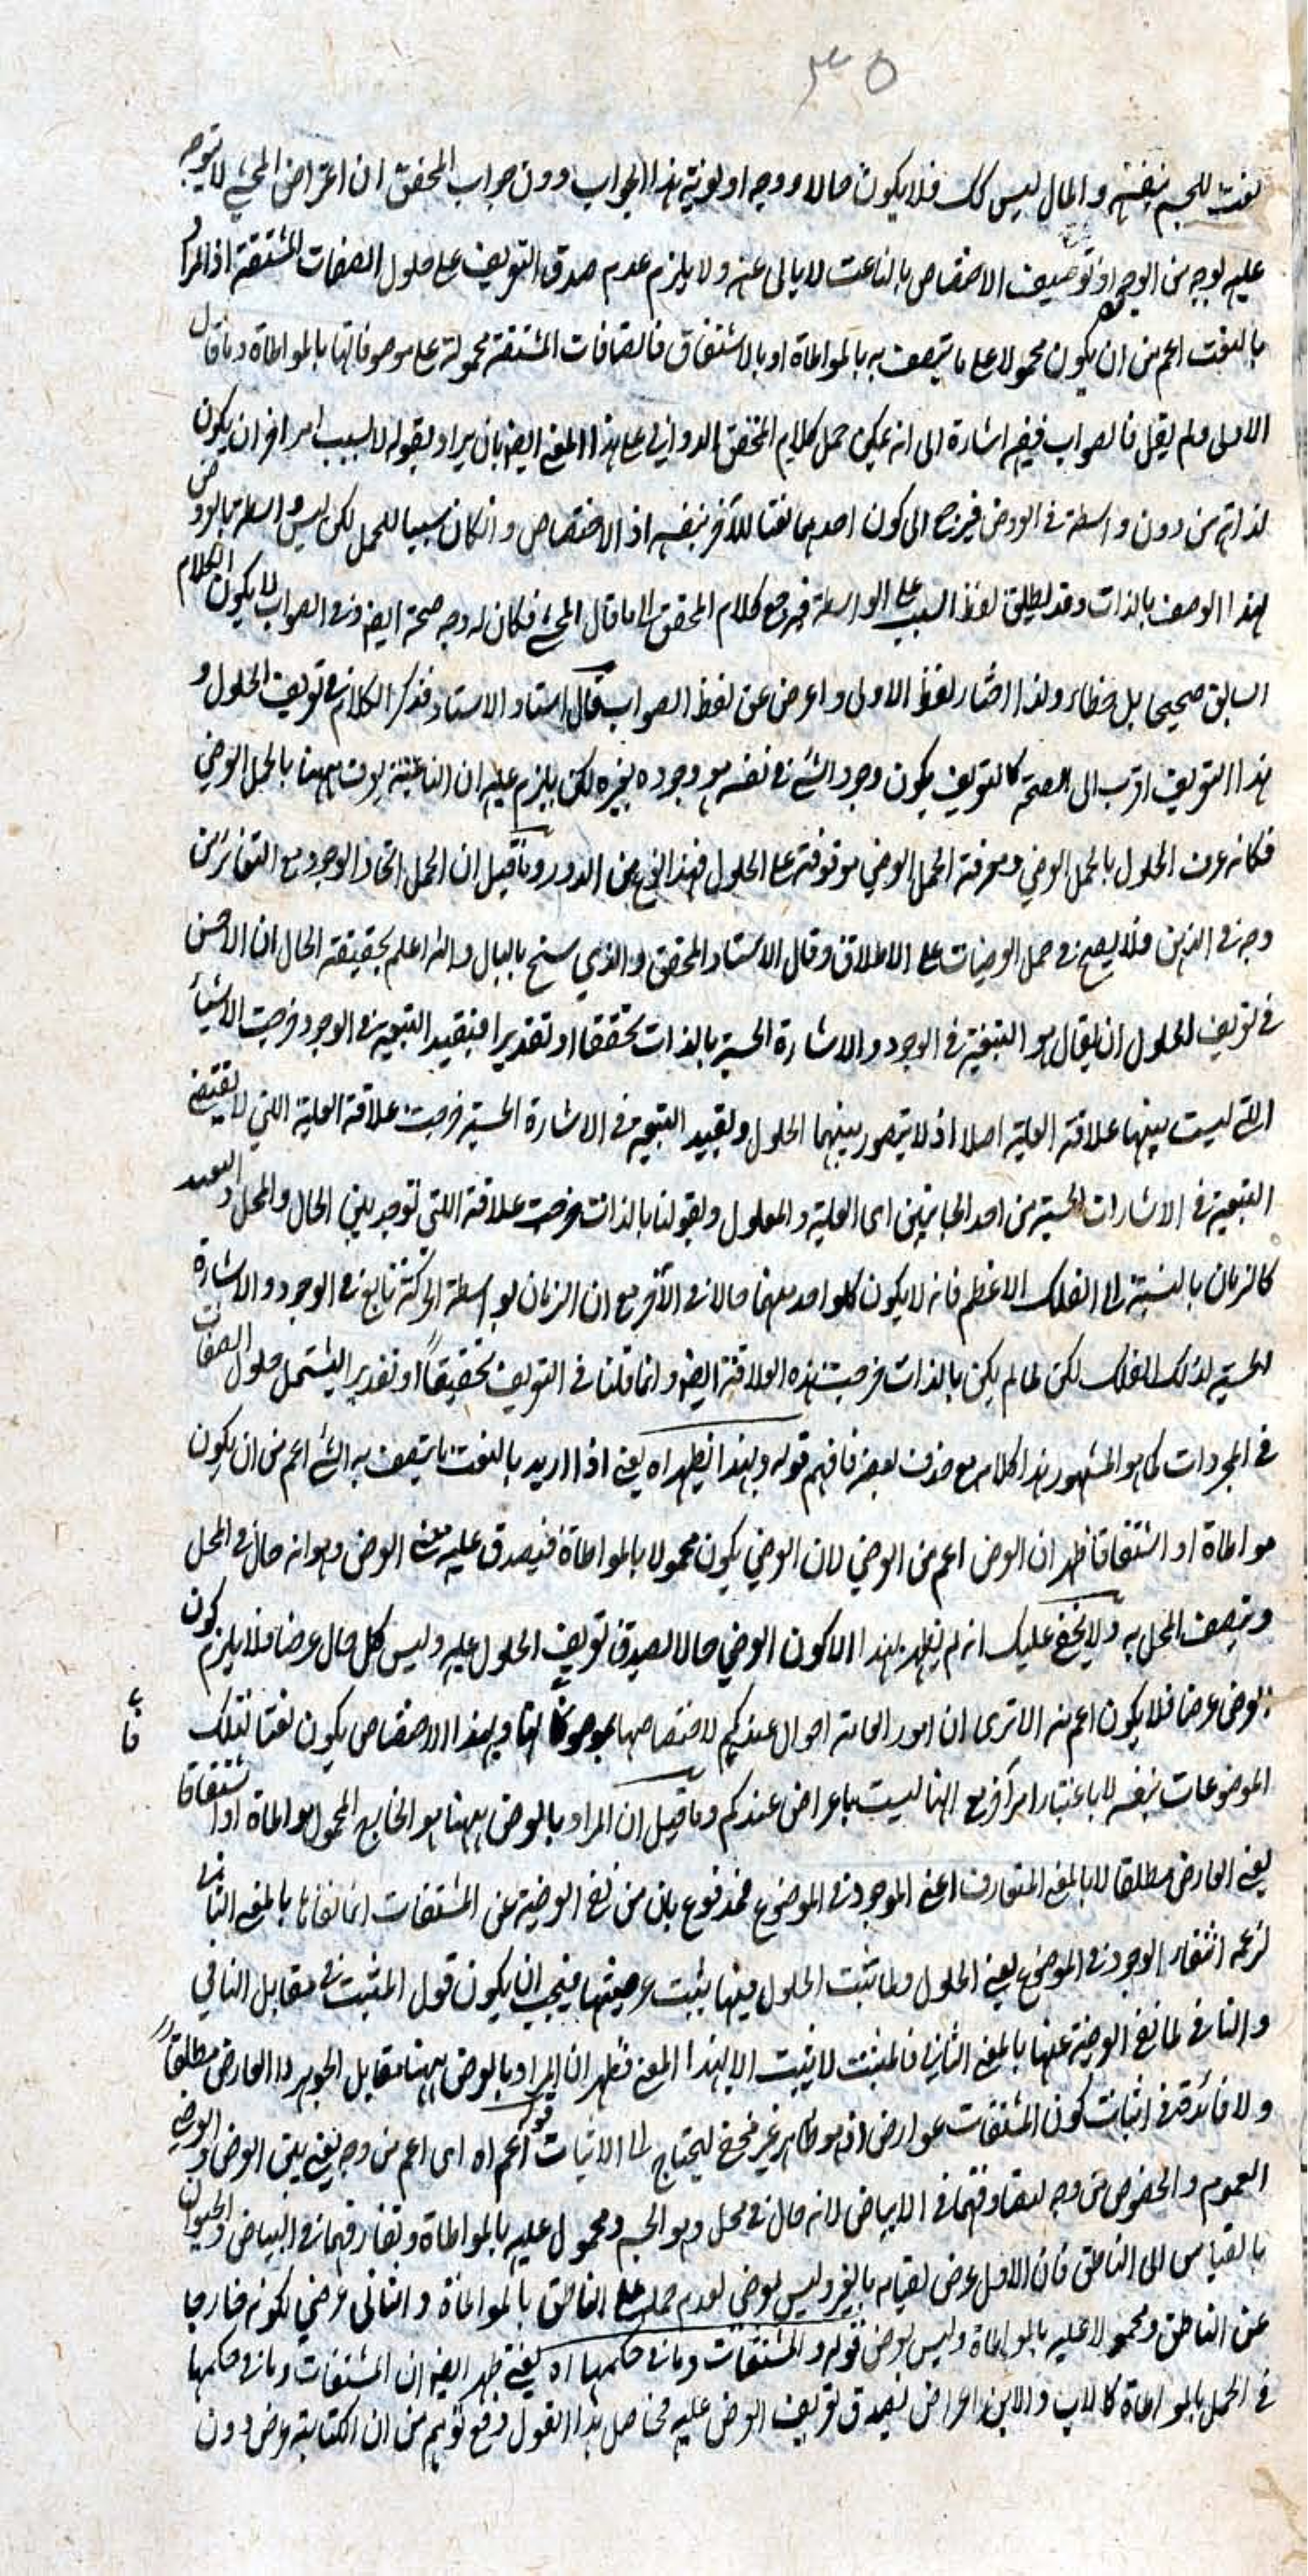 ٣٥
نعت للجسم بنفسه والمال ليس كك فلا يكون حالا ووجه اولوية هذا الجواب دون جواب المحقق ان اعتراض المحشي لا يتوجه
عليه بوجه من الوجوه اذ توصيف الاختصاص بالناعت لا يابى عنه ولا يلزم عدم صدق التعريف على حلول الصفات المشتقة اذ المراد
بالنعت اعم من ان يكون محمولا على ما يتصف به بالمواطاة او بالاشتقاق فالصفات المشتقة محمولة على موصوفاتها بالمواطاة وما قال
الاولى ولم يقل فالصواب ففيه اشارة الى انه يمكن حمل كلام المحقق الدواني على هذا المعنى ايضا بان يراد بقوله لا بسبب امر اخر ان يكون
لذاته من دون واسطة في العروض فيرجع الى كون احدهما نعتا للآخر بنفسه اذ الاختصاص وانكان سببا للحمل لكن ليس واسطة بالعروض
لهذا الوصف بالذات وقد يطلق لفظ السبب على الواسطة فيرجع كلام المحقق الى ما قال المحشي فكان له وجه صحة ايضا وفي الصواب لا يكون الكلام
السابق صحيحا بل خطاء ولذا اختار لفظ الاولى واعرض عن لفظ الصواب قال استاد الاستاد فذكر الكلام في تعريف الحلول و
هذا التعريف اقرب الى الصحة كالتعريف بكون وجود الشئ في نفسه هو وجوده لغيره لكن يلزم عليه ان الناعتية يعرف ههنا بالحمل العرضي
فكانه عرف الحلول بالحمل العرضي ومعرفة الحمل العرضي موقوفة على الحلول فهذا نوع من الدور وما قيل ان الحمل اتحاد الوجود مع التغاير من
وجه في الذهن فلا يصح في حمل العرضيات على الاطلاق وقال الاستاد المحقق والذي سنح بالبال والله اعلم بحقيقة الحال ان الاحسن
في تعريف الحلول ان يقال هو التبعية في الوجود والاشارة الحسية بالذات تحققا او تقديرا فبقيد التبعية في الوجود خرجت الاشياء
التي ليست بينها علاقة العلية اصلا اذ لا يتصور بينهما الحلول وبقيد التبعية في الاشارة الحسية خرجت علاقة العلية التي لا تقتضي
التبعية في الاشارات الحسية من احد الجانبين اى العلية والمعلول وبقولنا بالذات خرجت علاقة التي توجد بين الحال والمحل البعيد
كالزمان بالنسبة الى الفلك الاعظم فانه لا يكون كل واحد منهما حالا في الآخر مع ان الزمان بواسطة الحركة تابع في الوجود والاشارة
الحسية لذلك الفلك لكن لما لم يكن بالذات خرجت هذه العلاقة ايضا وانما قلنا في التعريف تحقيقا او تقديرا ليشتمل حلول الصفات
في المجردات كما هو المشهور هذا كلامه مع حذف بعضه فافهم قوله وبهذا يظهر اه يعني اذا اريد بالنعت ما يتصف به الشئ اعم من ان يكون
مواطاة او اشتقاقا ظهر ان العرض اعم من العرضي لان العرضي يكون محمولا بالمواطاة فيصدق عليه معنى العرض وهو انه حال في المحل
ويتصف المحل به ولا يخفى عليك انه لم يظهر بهذا الا كون العرضي حالا لصدق تعريف الحلول عليه وليس كل حال عرضا فلا يلزم كون
العرضي عرضا فلا يكون اعم منه الا ترى ان امور العامة احوال عندكم لاختصاصها بموصوفاتها وبهذا الاختصاص يكون نعتا لتلك
الموضوعات بنفسه لا باعتبار امر آخر مع انها ليست باعراض عندكم وما قيل ان المراد بالعرض ههنا هو الخارج المحمول مواطاة او اشتقاقا
يعني العارض مطلقا لا بالمعنى المتعارف اعني الموجود في الموضوع فمدفوع بان من نفى العرضية عن المشتقات انما نفاها بالمعنى الثاني
لزعمه انتفاء الوجود في الموضوع يعني الحلول ولما ثبت الحلول فيها يثبت عرضيتها فيجب ان يكون قول المثبت في مقابل النافي
والنافي لما نفى العرضية عنها بالمعنى الثاني فالمثبت لا يثبت الا بهذا المعنى فظهر ان المراد بالعرض ههنا مقابل الجوهر لا العارض مطلقا
ولا فائدة في اثبات كون المشتقات عوارض اذ هو ظاهر غير مخفي ليحتاج الى الاثبات قوله اعم اه اى اعم من وجه يعني بين العرض والعرضي
العموم والخصوص من وجه لتصادقهما في الابياض لانه حال في محل وهو الجسم ومحمول عليه بالمواطاة وتفارقهما في البياض والحيوان
بالقياس الى الناطق فان الاول عرض لقيامه بالغير وليس بعرضي لعدم حمله على الناطق بالمواطاة والثاني عرضي لكونه خارجا
عن الناطق ومحمولا عليه بالمواطاة وليس بعرض قوله والمشتقات وما في حكمها اه يعني ظهر ايضا ان المشتقات وما في حكمها
في الحمل بالمواطاة كالاب والابن اعراض لصدق تعريف العرض عليه فحاصل هذا القول دفع توهم من ان الكتابة عرض دون